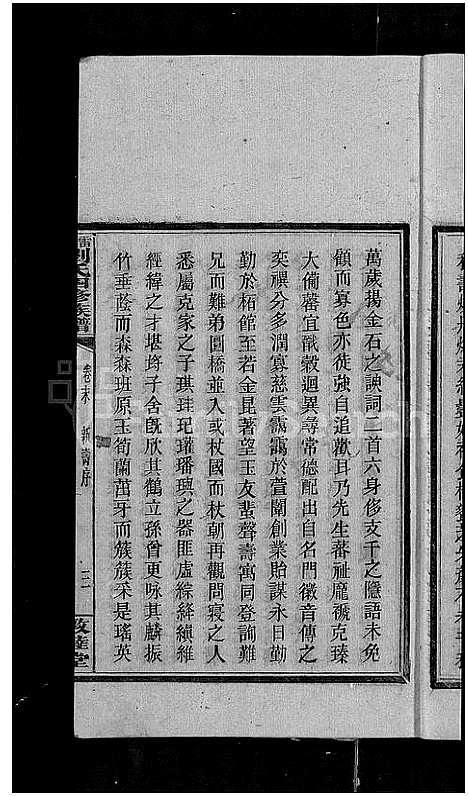 萬歲揚金石之諛詞二首六身侈支千之隱語未免
顧而寡色亦徒強自追歡耳乃先生蕃祉龐褫克臻
大備蕃宜戩穀迥異尋常德配出自名門徽音傳之
奕禩分多潤寡慈雲靄靄於萱闈創業貽謀永日勤
勤於栢館至若金昆著望玉友蜚聲壽寓同登論難
兄而難弟圓橋並入或杖國而杖朝再觀問寢之人
悉屬克家之子琪珪玘瓘璠璵之器匪虛綜絳縝維
經緯之才堪埓子舍旣欣其鶴立孫曾更咏其麟振
竹垂蔭而森森班原玉筍蘭茁牙而簇簇采是瑤英
劉氏四修族譜
卷末 新壽序
三
敦睦堂